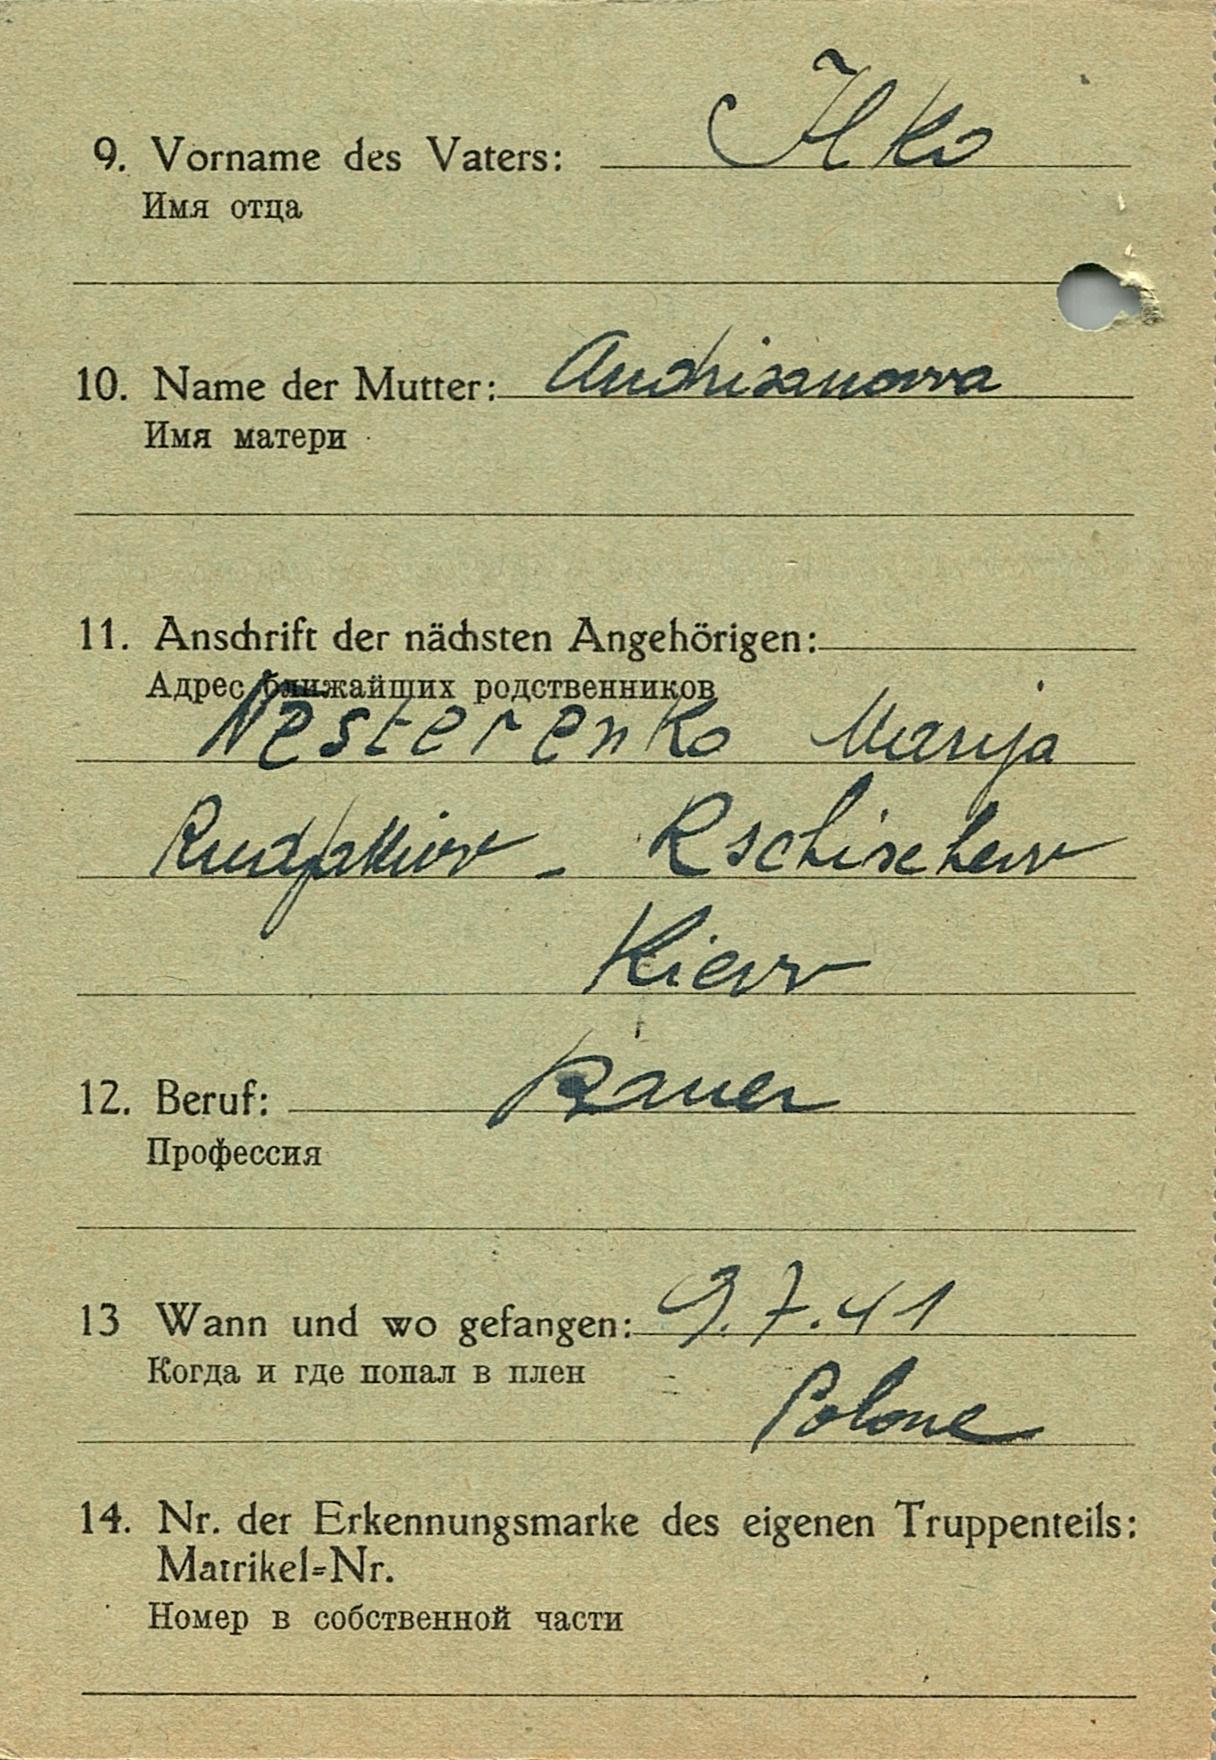 9. Vorname des Vaters: Ilko
Имя отца
10. Name der Mutter: Andrisanowa
Имя матери
11. Anschrift der nächsten Angehörigen:
Адрес ближайших родственников
Nesterenko Marija
- Rschischew
Kiew
12. Beruf: Bauer
Профессия
13 Wann und wo gefangen: 9.7.41
Когда и где попал в плен
Polone
14. Nr. der Erkennungsmarke des eigenen Truppenteils:
Matrikel=Nr.
Номер в собственной части